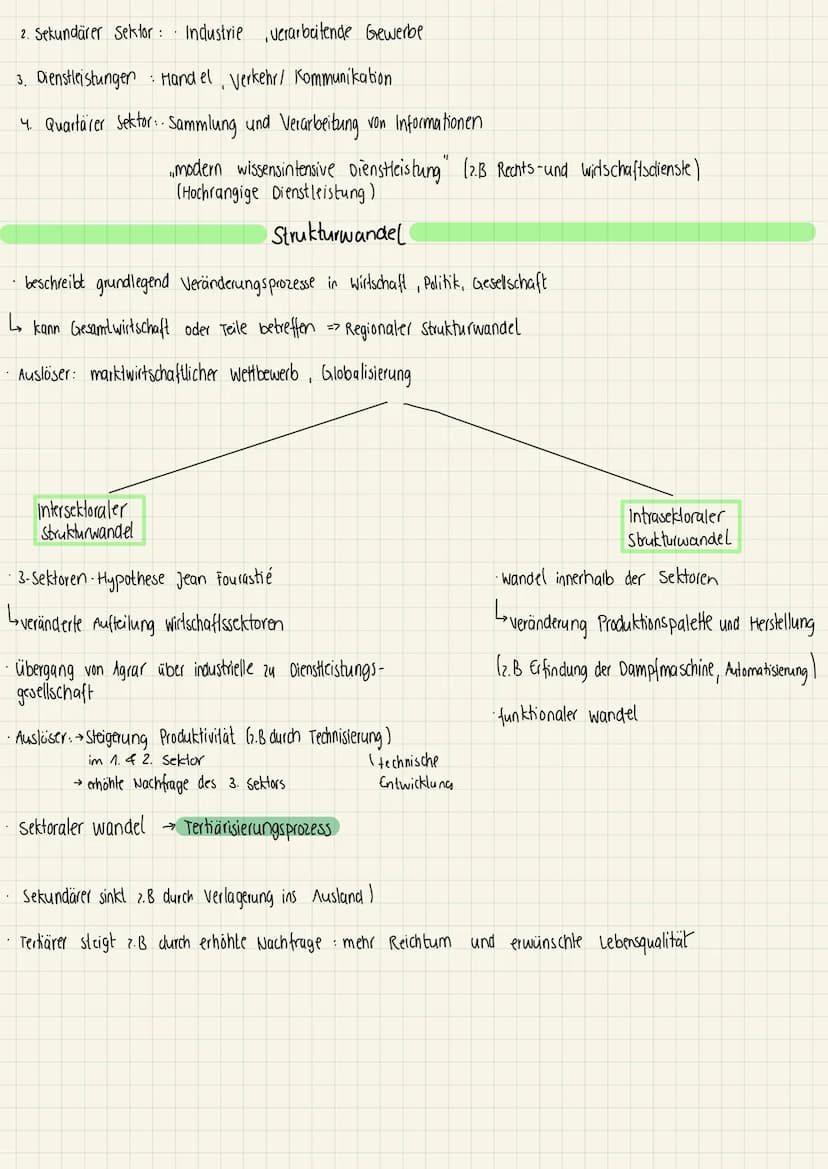 2. Sekundärer Sektor : · Industrie , verarbeitende Gewerbe
3. Dienstleistungen : Handel , Verkehr / Kommunikation
4. Quartärer Sektor: · Sammlung und Verarbeitung von Informationen
„modern wissensintensive Dienstleistung" (z.B Rechts- und Wirtschaftsdienste)
(Hochrangige Dienstleistung)
Strukturwandel
· beschreibt grundlegend Veränderungsprozesse in Wirtschaft , Politik, Gesellschaft
↳ kann Gesamtwirtschaft oder Teile betreffen => Regionaler Strukturwandel
· Auslöser: marktwirtschaftlicher Wettbewerb , Globalisierung
Intersektoraler
Strukturwandel
· 3-Sektoren-Hypothese Jean Fourastié
↳ veränderte Aufteilung Wirtschaftssektoren
· Übergang von Agrar über industrielle zu Dienstleistungs-
gesellschaft
· Auslöser: → Steigerung Produktivität (z.B durch Technisierung)
im 1. & 2. Sektor
\ technische
Entwicklung
→ erhöhte Nachfrage des 3. Sektors
· Sektoraler Wandel → Tertiärisierungsprozess
· Sekundärer sinkt z.B durch Verlagerung ins Ausland)
· Tertiärer steigt z.B durch erhöhte Nachfrage : mehr Reichtum und erwünschte Lebensqualität
Intrasektoraler
Strukturwandel
· Wandel innerhalb der Sektoren
↳ Veränderung Produktionspalette und Herstellung
(z.B Erfindung der Dampfmaschine, Automatisierung)
· funktionaler Wandel